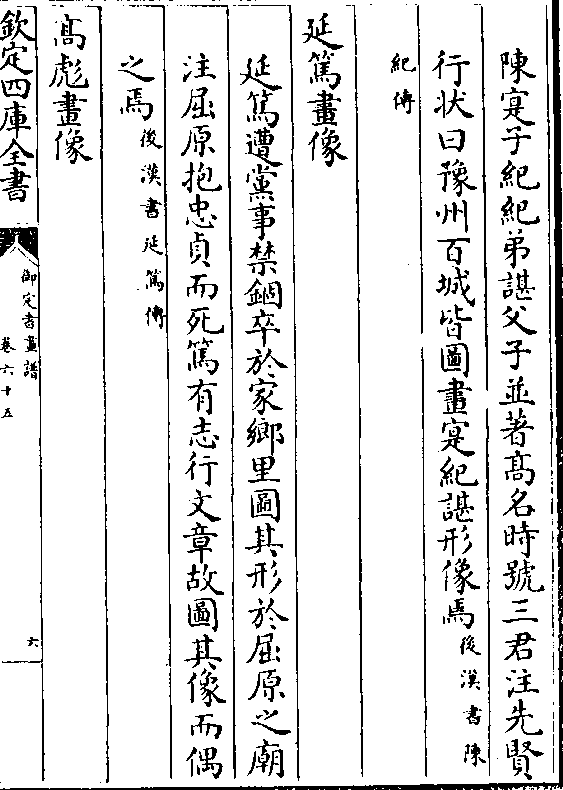 陳寔子紀紀弟諶父子並著髙名時號三君注先賢
行狀曰豫州百城皆圖畫寔紀諶形像焉後漢書陳
紀傳
延篤畫像
延篤遭黨事禁錮卒於家鄉里圖其形於屈原之廟
注屈原抱忠貞而死篤有志行文章故圖其像而偶
之焉後漢書延篤傳
髙彪畫像
欽定四庫全書
御定書畫譜
卷六十五
六